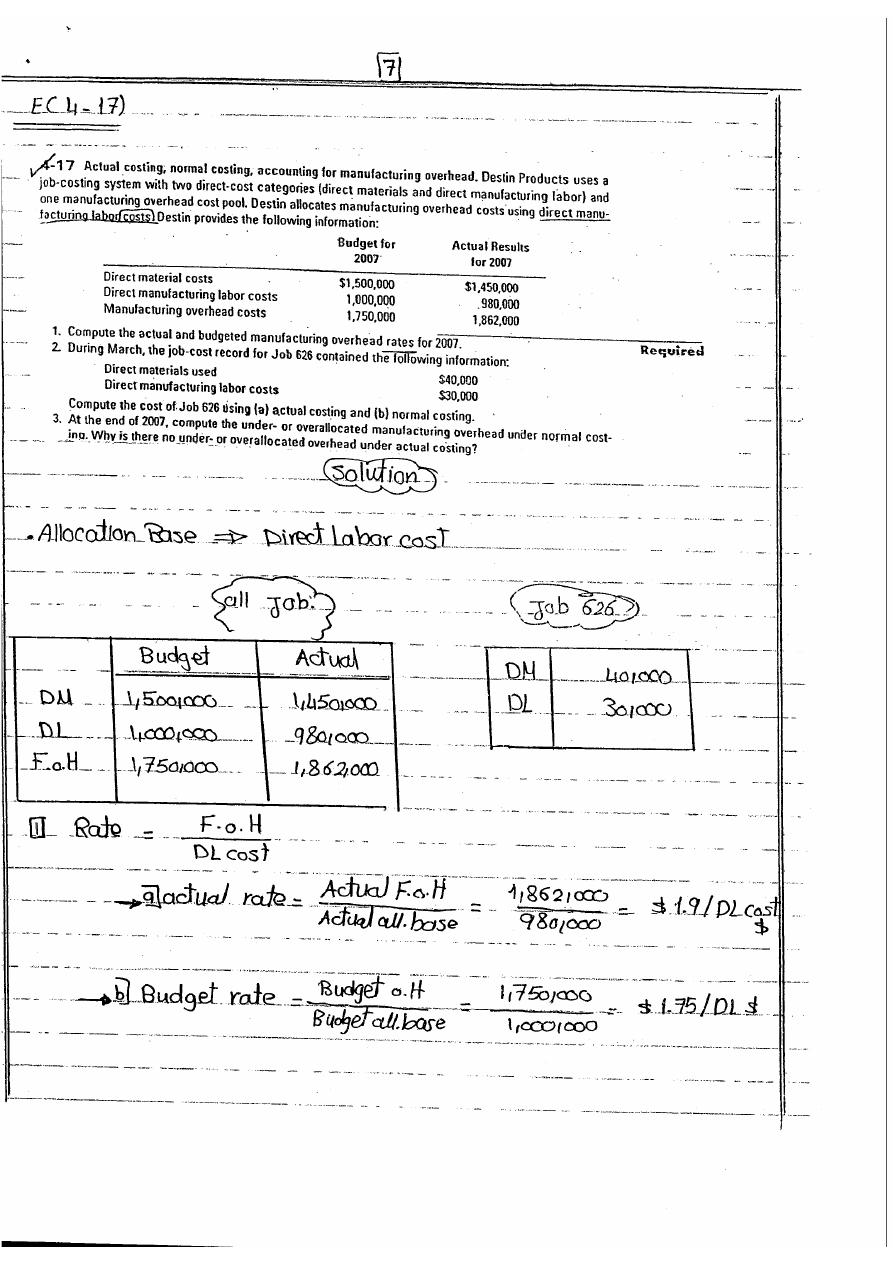 7
EC 4-17)
4-17 Actual costing, normal costing, accounting for manufacturing overhead. Destin Products uses a
job-costing system with two direct-cost categories (direct materials and direct manufacturing labor) and
one manufacturing overhead cost pool. Destin allocates manufacturing overhead costs using direct manu-
facturing labor (costs). Destin provides the following information:
Budget for Actual Results
2007 for 2007
Direct material costs $1,500,000 $1,450,000
Direct manufacturing labor costs 1,000,000 980,000
Manufacturing overhead costs 1,750,000 1,862,000
1. Compute the actual and budgeted manufacturing overhead rates for 2007. Required
2. During March, the job-cost record for Job 626 contained the following information:
Direct materials used $40,000
Direct manufacturing labor costs $30,000
Compute the cost of Job 626 using (a) actual costing and (b) normal costing.
3. At the end of 2007, compute the under- or overallocated manufacturing overhead under normal cost-
ing. Why is there no under- or overallocated overhead under actual costing?
Solution
. Allocation Base => Direct Labor cost
all Job: Job 626
Budget Actual
DM 1,500,000 1,450,000
DL 1,000,000 980,000
F.o.H 1,750,000 1,862,000
DM 40,000
DL 30,000
1 Rate = F.o.H
DL cost
→ a] actual rate = Actual F.o.H = 1,862,000 = $ 1.9/DL cost
Actual all.base 980,000 $
→ b] Budget rate = Budget o.H = 1,750,000 = $ 1.75/DL $
Budget all.base 1,000,000